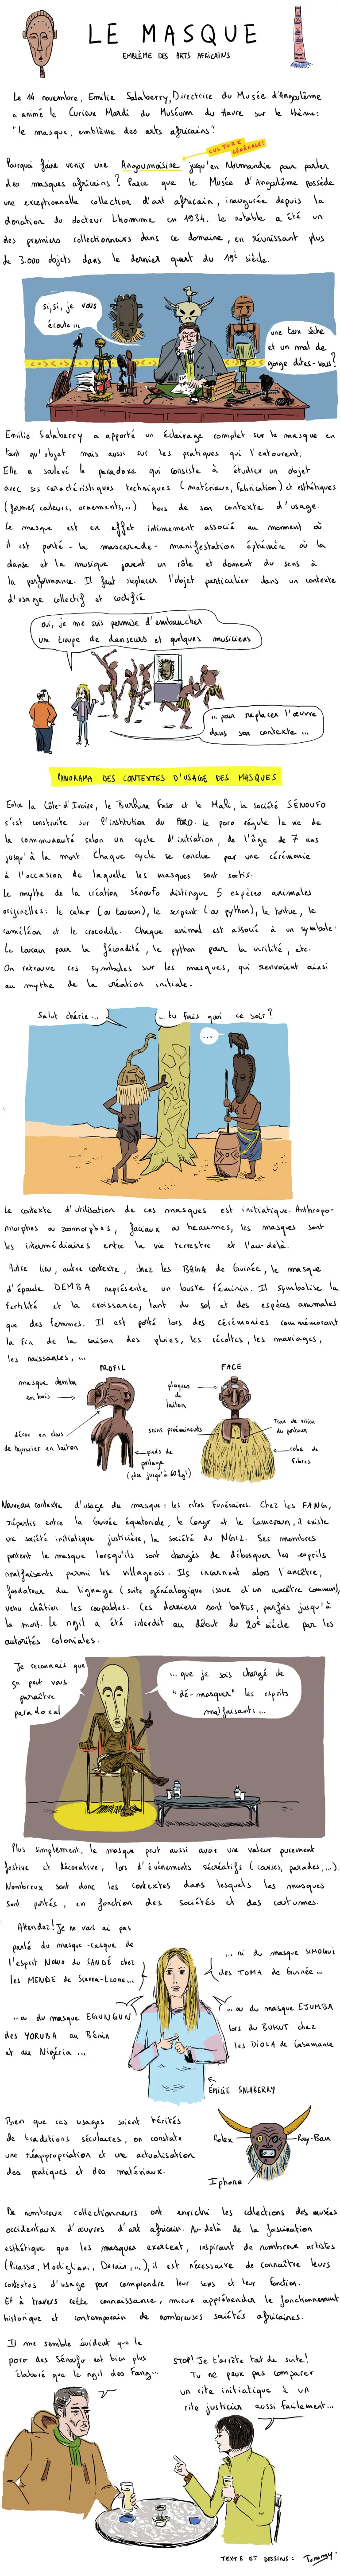 LE MASQUE
EMBLÈME DES ARTS AFRICAINS
Le 14 novembre, Emilie Salaberry, Directrice du Musée d'Angoulême
a animé le Curieux Mardi du Muséum du Havre sur le thème:
"le masque, emblème des arts africains".
CULTURE
GÉNÉRALE!
Pourquoi faire venir une Angoumoisine jusqu'en Normandie pour parler
des masques africains? Parce que le Musée d'Angoulême possède
une exceptionnelle collection d'art africain, inaugurée depuis la
donation du docteur Lhomme en 1934. Le notable a été un
des premiers collectionneurs dans ce domaine, en réunissant plus
de 3.000 objets dans le dernier quart du 19è siècle.
si, si, je vous
écoute...
une toux sèche
et un mal de
gorge dites-vous?
Emilie Salaberry a apporté un éclairage complet sur le masque en
tant qu'objet mais aussi sur les pratiques qui l'entourent.
Elle a soulevé le paradoxe qui consiste à étudier un objet
avec ses caractéristiques techniques (matériaux, fabrication) et esthétiques
(formes, couleurs, ornements,...) hors de son contexte d'usage.
Le masque est en effet intimement associé au moment où
il est porté - la mascarade - manifestation éphémère où la
danse et la musique jouent un rôle et donnent du sens à
la performance. Il faut replacer l'objet particulier dans un contexte
d'usage collectif et codifié.
oui, je me suis permise d'embaucher
une troupe de danseurs et quelques musiciens
... pour replacer l'œuvre
dans son contexte ...
PANORAMA DES CONTEXTES D'USAGE DES MASQUES
Entre la Côte-d'Ivoire, le Burkina Faso et le Mali, la société SÉNOUFO
s'est construite sur l'institution du PORO. Le poro régule la vie de
la communauté selon un cycle d'initiation, de l'âge de 7 ans
jusqu'à la mort. Chaque cycle se conclue par une cérémonie
à l'occasion de laquelle les masques sont sortis.
Le mythe de la création sénoufo distingue 5 espèces animales
originelles: le calao (ou toucan), le serpent (ou python), la tortue, le
caméléon et le crocodile. Chaque animal est associé à un symbole:
Le toucan pour la fécondité, le python pour la virilité, etc.
On retrouve ces symboles sur les masques, qui renvoient ainsi
au mythe de la création initiale.
Salut chérie...
... tu fais quoi ce soir?
...
Le contexte d'utilisation de ces masques est initiatique. Anthropo-
morphes ou zoomorphes, faciaux ou heaumes, les masques sont
les intermédiaires entre la vie terrestre et l'au-delà.
Autre lieu, autre contexte, chez les BAGA de Guinée, le masque
d'épaule DEMBA représente un buste féminin. Il symbolise la
fertilité et la croissance, tant du sol et des espèces animales
que des femmes. Il est porté lors des cérémonies commémorant
la fin de la saison des pluies, les récoltes, les mariages,
les naissances, ...
PROFIL
FACE
masque demba
en bois
décor en clous
de tapissier en laiton
pieds de
portage
(plus jusqu'à 60kg!)
plaques
de
laiton
seins proéminents
Trous de vision
du porteur
robe de
fibres
Nouveau contexte d'usage du masque: les rites funéraires. Chez les FANG,
répartis entre la Guinée équatoriale, le Congo et le Cameroun, il existe
une société initiatique justicière, la société du NGIL. Ses membres
portent le masque lorsqu'ils sont chargés de débusquer les esprits
malfaisants parmi les villageois. Ils incarnent alors l'ancêtre,
fondateur du lignage (suite généalogique issue d'un ancêtre commun),
venu châtier les coupables. Ces derniers sont battus, parfois jusqu'à
la mort. Le ngil a été interdit au début du 20è siècle par les
autorités coloniales.
Je reconnais que
ça peut vous
paraître
paradoxal
... que je sois chargé de
"dé-masquer" les esprits
malfaisants ...
Plus simplement, le masque peut aussi avoir une valeur purement
festive et décorative, lors d'événements récréatifs (courses, parades,...).
Nombreux sont donc les contextes dans lesquels les masques
sont portés, en fonction des sociétés et des coutumes.
Attendez! Je ne vous ai pas
parlé du masque-casque de
l'esprit NOWO du SANDÉ chez
les MENDE de Sierra-Leone...
... ni du masque SIMOGUI
des TOMA de Guinée ...
... ou du masque EGUNGUN
des YORUBA au Bénin
et au Nigéria ...
... ou du masque EJUMBA
lors du BUKUT chez
les DIOLA de Casamance
ÉMILIE SALABERRY
Bien que ces usages soient hérités
de traditions séculaires, on constate
une réappropriation et une actualisation
des pratiques et des matériaux.
Rolex
Ray-Ban
Iphone
De nombreux collectionneurs ont enrichi les collections des musées
occidentaux d'œuvres d'art africain. Au-delà de la fascination
esthétique que les masques exercent, inspirant de nombreux artistes
(Picasso, Modigliani, Derain,...), il est nécessaire de connaître leurs
contextes d'usage pour comprendre leur sens et leur fonction.
Et à travers cette connaissance, mieux appréhender le fonctionnement
historique et contemporain de nombreuses sociétés africaines.
Il me semble évident que le
poro des Sénoufo est bien plus
élaboré que le ngil des Fang...
STOP! Je t'arrête tout de suite!
Tu ne peux pas comparer
un rite initiatique à un
rite justicier aussi facilement...
TEXTE ET DESSINS: